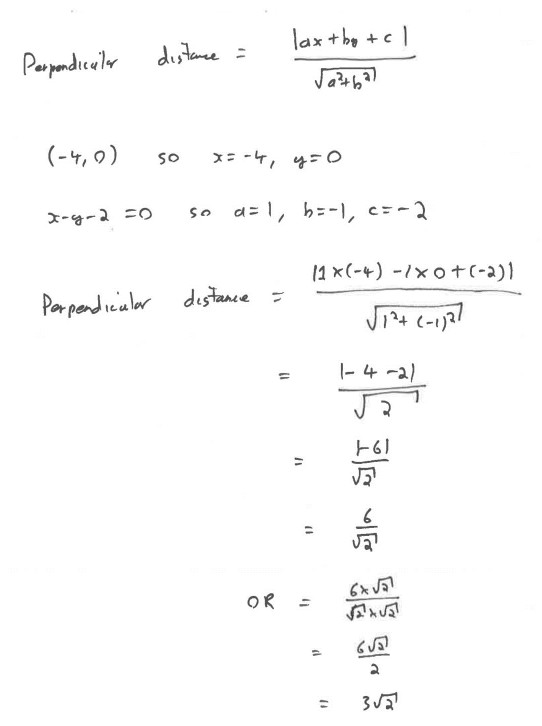 Perpendicular distance = |ax + by + c| / √(a²+b²)
(-4, 0) so x = -4, y = 0
x-y-2 = 0 so a = 1, b = -1, c = -2
Perpendicular distance = |1 × (-4) - 1 × 0 + (-2)| / √(1² + (-1)²)
= |-4 - 2| / √2
= |-6| / √2
= 6 / √2
OR = 6×√2 / √2×√2
= 6√2 / 2
= 3√2